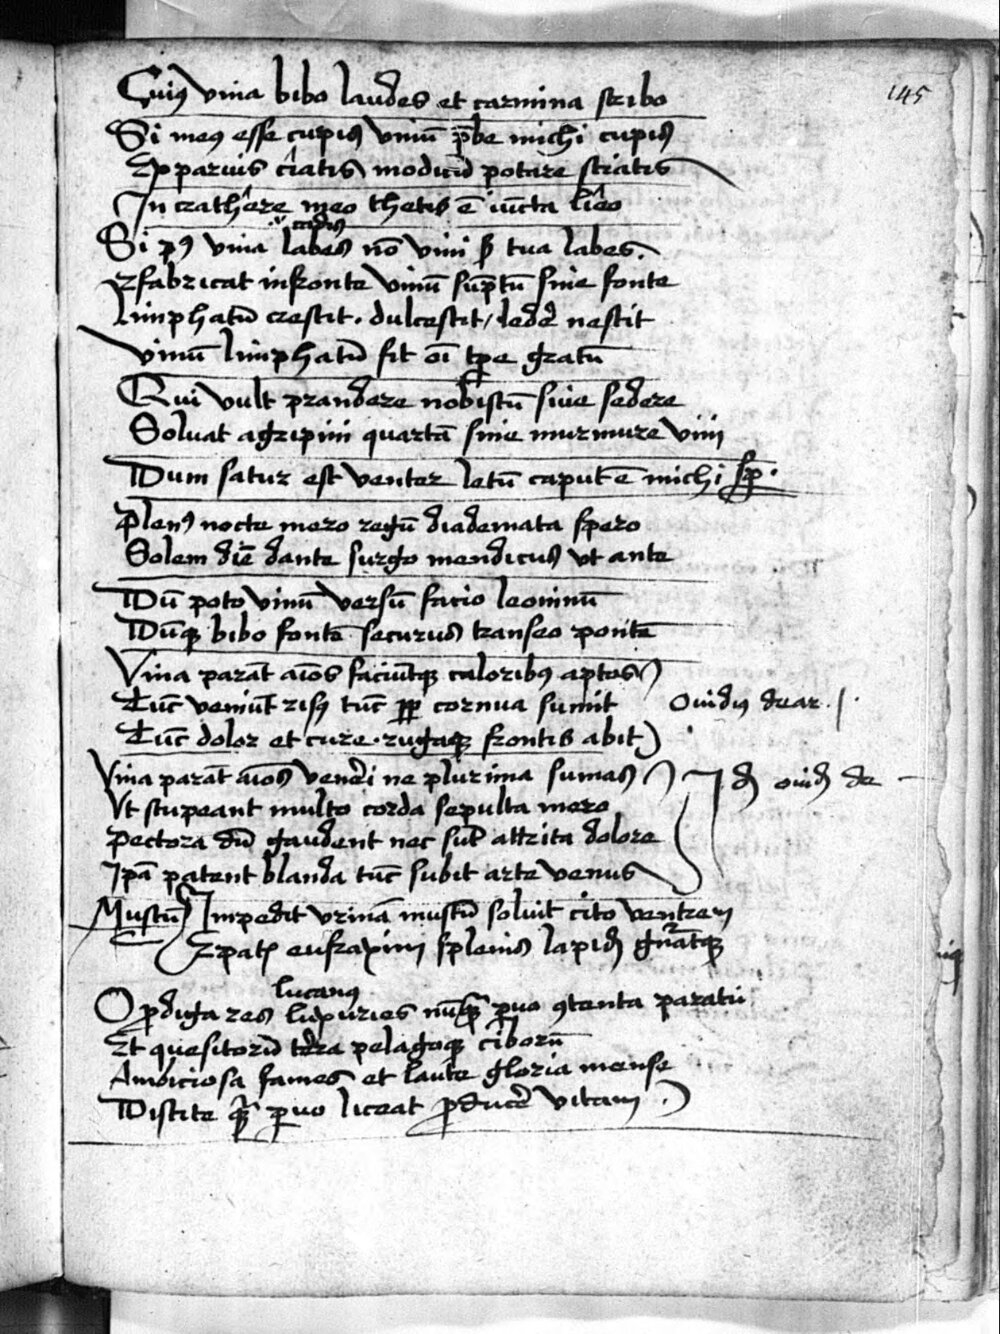 145
Cuiꝯ vina bibo laudes et carmina scribo
Si meꝯ esse cupis vinū p̄be michi cupis
Ex paruis ciatis modicū potare sciatis
In crathere meo thetis ē iūcta lieo
cadis
Si pꝯ vina labes nō vini sꝫ tua labes.
fabricat in fronte vinū sūptū sine fonte
Limphatū crescit. dulcescit, ledē nescit
Vinū limphatū fit oī tp̄e gratū
Qui vult prandere nobiscū siue sedere
Soluat agripini quartā sine murmure vini
Dum satur est venter letū caput ē michi sp̄.
Plenꝯ nocte mero regū diademata spero
Solem diē dante surgo mendicus vt ante
Dū poto vinū versū facio leoninū
Dūqꝫ bibo fontē securus transeo pontē
Vina parāt aīos faciūtqꝫ caloribꝯ aptos
Tūc veniūt risꝯ tūc pꝑ cornua sumit Ouidiꝯ de ar.
Tūc dolor et cure. rugaqꝫ frontis abit
Vina parāt aīos veneri ne plurima sumas Id ouidꝯ de
Vt stupeant multo corda sepulta mero
Pectora dū gaudent nec sūt attrita dolore
Ipā patent blanda tūc subit arte venus
Mustū Impedit vrinā mustū soluit cito ventrem
Epatꝭ eufraxim splenis lapidꝭ gn̄atqꝫ
lucanꝯ
O ꝓdiga res luxuries nūqꝫ ꝑuo ꝯtenta paratu
Et quesitorū terra pelagoqꝫ ciborū
Ambiciosa fames et laute gloria mense
Discite qꝫ ꝑuo liceat ꝓducē vitam.